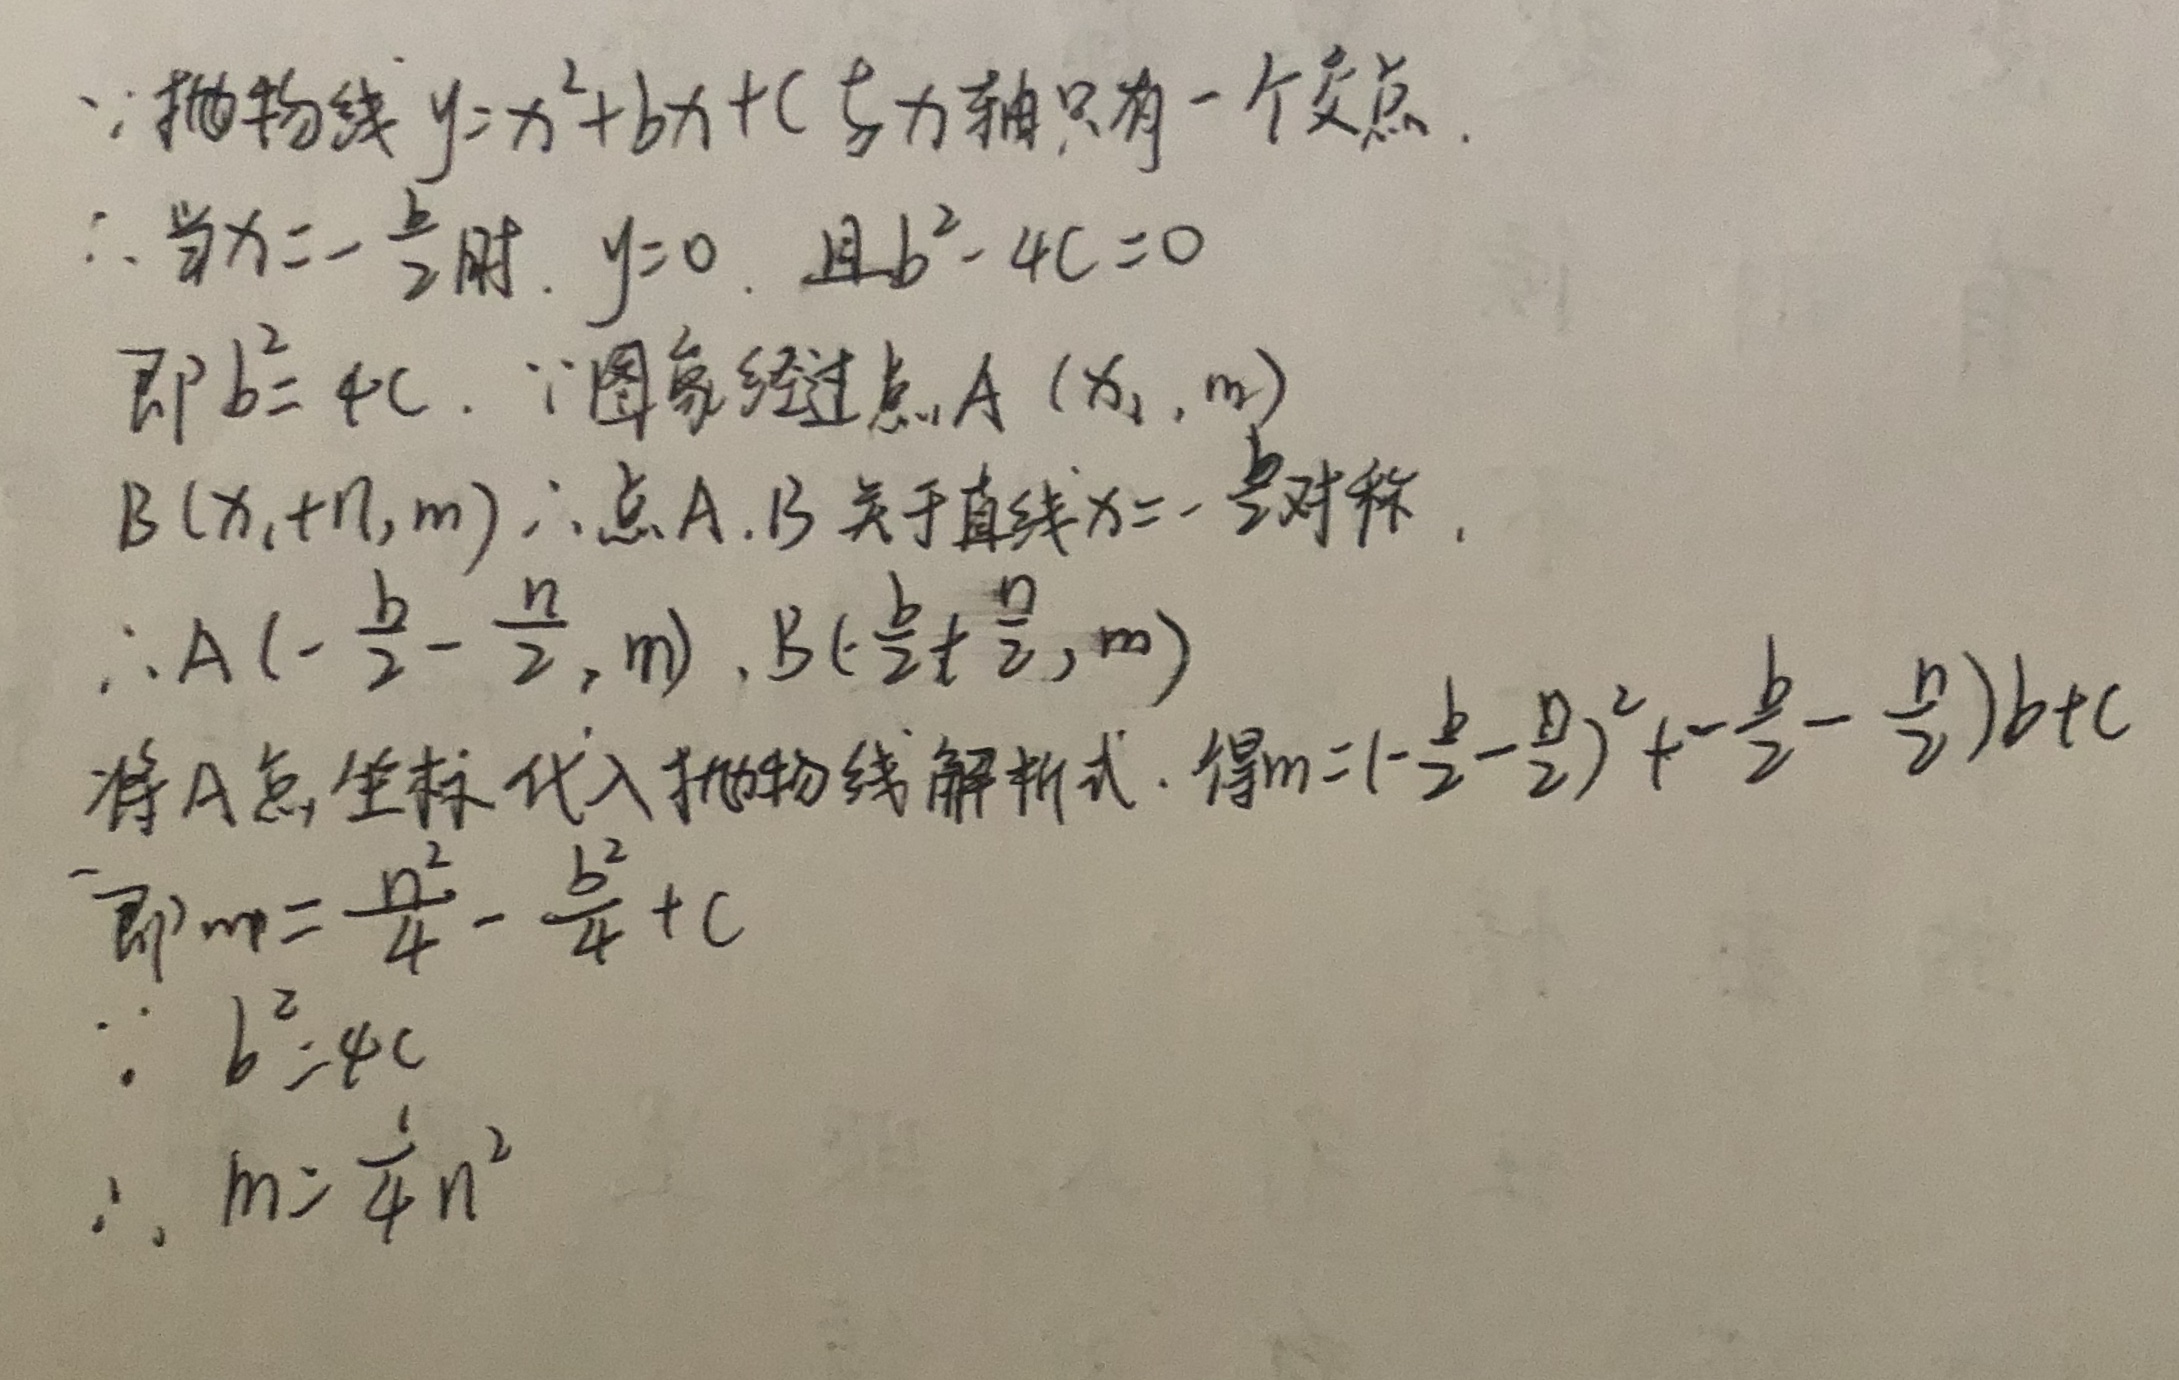 ∵抛物线y=x²+bx+c与x轴只有一个交点.
∴当x=-b/2时.y=0.且b²-4c=0
即b²=4c.∵图象经过点A(x₁,m)
B(x₁+n,m)∴点A.B关于直线x=-b/2对称.
∴A(-b/2-n/2,m).B(-b/2+n/2,m)
将A点坐标代入抛物线解析式.得m=(-b/2-n/2)²+-b/2-n/2)b+c
即m=n²/4-b²/4+c
∵b²=4c
∴m=1/4n²